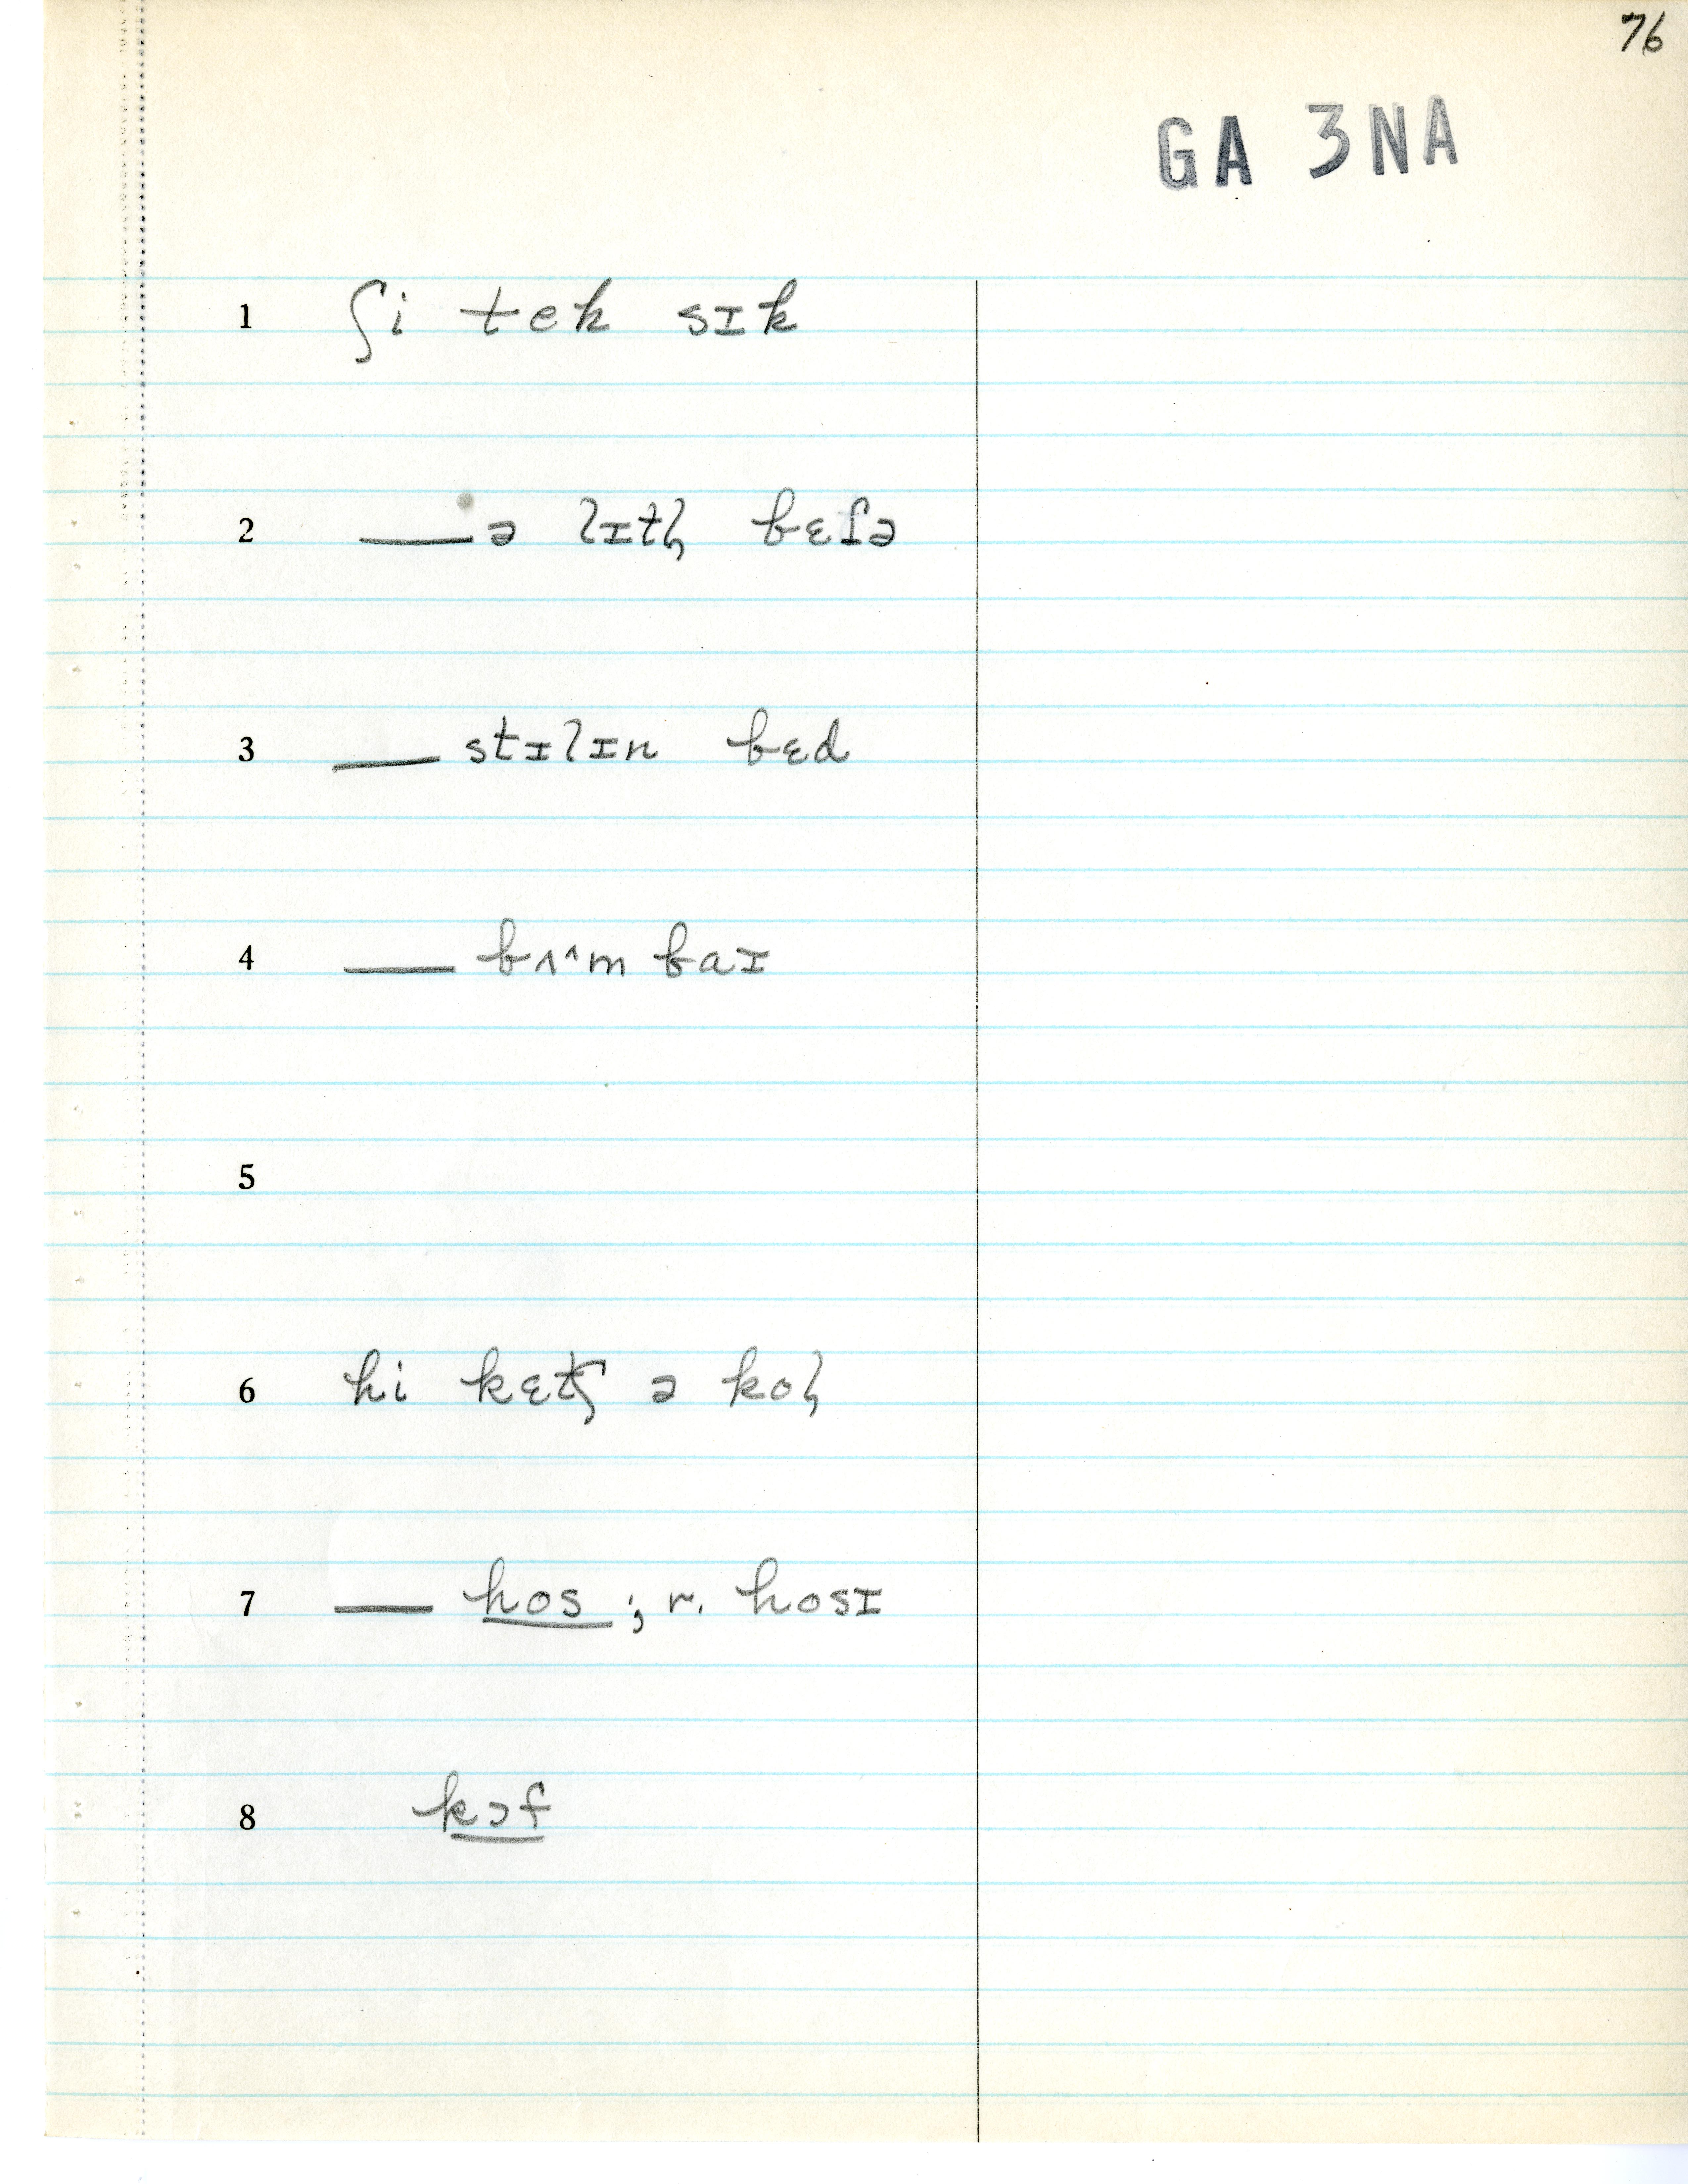 76
GA 3NA
1 ʃi tek sɪk
2 —ə lɪtl̩ bɛtə
3 — stɪlɪn bɛd
4 — bʌ^m baɪ
5
6 hi kɛtʃ ə kol
7 — hos ; r. hosɪ
8 kɔf